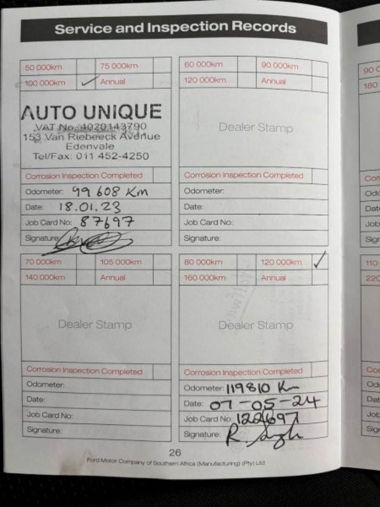 Service and Inspection Records
50 000km 75 000km
100 000km ✓ Annual
AUTO UNIQUE
VAT No. 4020143790
153 Van Riebeeck Avenue
Edenvale
Tel/Fax: 011 452-4250
Corrosion Inspection Completed
Odometer: 99 608 Km
Date: 18.01.23
Job Card No: 87697
Signature:
60 000km 90 000km
120 000km Annual
Dealer Stamp
Corrosion Inspection Completed
Odometer:
Date:
Job Card No:
Signature:
70 000km 105 000km
140 000km Annual
Dealer Stamp
Corrosion Inspection Completed
Odometer:
Date:
Job Card No:
Signature:
80 000km 120 000km ✓
160 000km Annual
Dealer Stamp
Corrosion Inspection Completed
Odometer: 119810 Km
Date: 07-05-24
Job Card No:
Signature:
26
Ford Motor Company of Southern Africa (Manufacturing) (Pty) Ltd
90 0
180
Cor
Odo
Date
Job
Sig
110
220
Co
Od
Da
Job
Sig